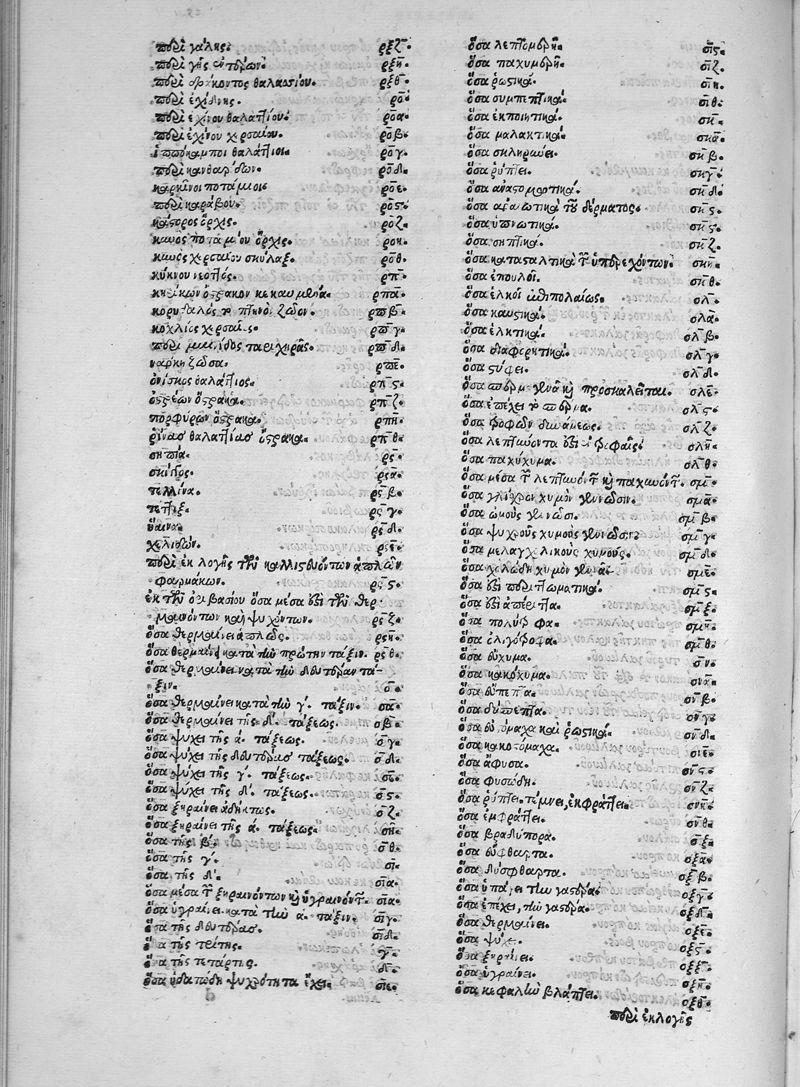 περὶ γαλῆς. ρξζ.
περὶ γῆς ἐντέρων. ρξη.
περὶ δράκοντος θαλασσίου. ρξθ.
περὶ ἐχίδνης. ρο.
περὶ ἐχίνου θαλαττίου. ροα.
περὶ ἐχίνου χερσαίου. ροβ.
ἱππόκαμποι θαλάττιοι. ρογ.
περὶ κανθαρίδων. ροδ.
καρκῖνοι ποτάμιοι. ροε.
περὶ καράβου. ροϛ.
κάστορος ὄρχις. ροζ.
ποταμίου ὄρχις. ροη.
χερσαίου σκύλαξ. ροθ.
κύκνου νεοττός. ρπ.
κηρύκων ὄστρακον κεκαυμένα. ρπα.
κορυδαλὸς τὸ πτηνὸν ζῶον. ρπβ.
κοχλίας χερσαῖος. ρπγ.
περὶ ταριχηρᾶς. ρπδ.
νάρκη ζῶσα. ρπε.
ὀνίσκος θαλάττιος. ρπϛ.
ὀστρέων ὄστρακα. ρπζ.
πορφύρων ὄστρακα. ρπη.
ῥίνας θαλαττίας ὄστρακα. ρπθ.
σηπία. ρϟ.
σκίγγος. ρϟα.
τελλίνα. ρϟβ.
τέττιξ. ρϟγ.
ὕαινα. ρϟδ.
χελιδών. ρϟε.
περὶ ἐκλογῆς τῶν καλλιστευόντων ἁπλῶν
φαρμάκων. ρϟϛ.
ἐκ τῶν ὀριβασίου ὅσα μέσα ἐστὶ τῶν θερ
μαινόντων καὶ ψυχόντων. ρϟζ.
ὅσα θερμαίνει ἁπλῶς. ρϟη.
ὅσα θερμαίνει κατὰ τὴν πρώτην τάξιν. ρϟθ.
ὅσα θερμαίνει κατὰ τὴν δευτέραν τά-
ξιν. σ.
ὅσα θερμαίνει κατὰ τὴν γ. τάξιν. σα.
ὅσα θερμαίνει τῆς δ. τάξεως. σβ.
ὅσα ψύχει τῆς α. τάξεως. σγ.
ὅσα ψύχει τῆς δευτέρας τάξεως. σδ.
ὅσα ψύχει τῆς γ. τάξεως. σε.
ὅσα ψύχει τῆς δ. τάξεως. σϛ.
ὅσα ξηραίνει ἀδήκτως. σζ.
ὅσα ξηραίνει τῆς α. τάξεως. ση.
ὅσα τῆς β. σθ.
ὅσα τῆς γ. σι.
ὅσα τῆς δ. σια.
ὅσα μέσα τῶν ξηραινόντων καὶ ὑγραινόντων. σια.
ὅσα ὑγραίνει κατὰ τὴν α. τάξιν. σιγ.
ὅσα τῆς δευτέρας. σιδ.
ὅσα τῆς τρίτης. γ.
ὅσα τῆς τετάρτης. δ.
ὅσα ὑδατώδη ψυχρότητα ἔχει. σιε.
ὅσα λεπτομερῆ. σιϛ.
ὅσα παχυμερῆ. σιζ.
ὅσα ῥωστικά. σιη.
ὅσα συμπεπτικά. σιθ.
ὅσα ἐκποιητικά. σκ.
ὅσα μαλακτικά. σκα.
ὅσα σκληρύνει. σκβ.
ὅσα ῥύπτει. σκγ.
ὅσα ἀναστομωτικά. σκδ.
ὅσα ἀραιωτικὰ τοῦ δέρματος. σκϛ.
ὅσα ὑπνωτικά. σκϛ.
ὅσα σηπτικά. σκζ.
ὅσα κατασταλτικὰ τῶν ὑπερεχόντων. σκη.
ὅσα ἐπουλοῖ. σκθ.
ὅσα ἑλκοῖ ἐπιπολαίως. σλ.
ὅσα καυστικά. σλα.
ὅσα ἑλκτικά. σλβ.
ὅσα διαφορητικά. σλγ.
ὅσα στύφει. σλδ.
ὅσα σπέρμα γεννᾷ καὶ προσκαλεῖται. σλε.
ὅσα ἐπέχει τὸ σπέρμα. σλϛ.
ὅσα τροφῶν δυνάμεως. σλζ.
ὅσα λεπτύνοντα ἐστὶ τροφαῖς. σλη.
ὅσα παχύχυμα. σλθ.
ὅσα μέσα τῶν λεπτυνόντων καὶ παχυνόντων. σμ.
ὅσα γλίσχρον χυμὸν γεννῶσιν. σμα.
ὅσα ὠμοὺς γεννῶσι. σμβ.
ὅσα ψυχροὺς χυμοὺς γεννῶσι. σμγ.
ὅσα μελαγχολικοὺς χυμούς. σμδ.
ὅσα χολώδη χυμὸν γεννᾷ. σμε.
ὅσα ἐστὶ περιττωματικά. σμϛ.
ὅσα ἐστὶ ἀπέριττα. σμξ.
ὅσα πολύτροφα. σμη.
ὅσα ὀλιγότροφα. σμθ.
ὅσα εὔχυμα. σν.
ὅσα κακόχυμα. σνα.
ὅσα εὔπεπτα. σνβ.
ὅσα δύσπεπτα. σνγ.
ὅσα εὐστόμαχα καὶ ῥωστικά. σνδ.
ὅσα κακοστόμαχα. σιε.
ὅσα ἄφυσα. σνϛ.
ὅσα φυσώδη. σνζ.
ὅσα ῥύπτει, τέμνει, ἐκφράττει. σνη.
ὅσα ἐμφράττει. σνθ.
ὅσα βραδύπορα. σξ.
ὅσα εὔφθαρτα. σξα.
ὅσα δύσφθαρτα. σξβ.
ὅσα ὑπάγει τὴν γαστέρα. σξγ.
ὅσα ἐπέχει, τὴν γαστέρα. σξδ.
ὅσα θερμαίνει. σξε.
ὅσα ψύχει. σξϛ.
ὅσα ξηραίνει. σξζ.
ὅσα ὑγραίνει. σξη.
ὅσα κεφαλὴν βλάπτει. σξθ.
περὶ ἐκλογῆς